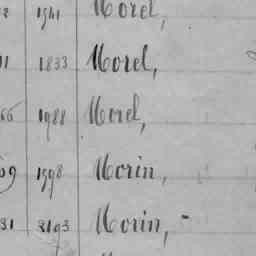 1541 Morel,
1833 Morel,
1988 Morel,
1598 Morin,
31 3193 Morin,